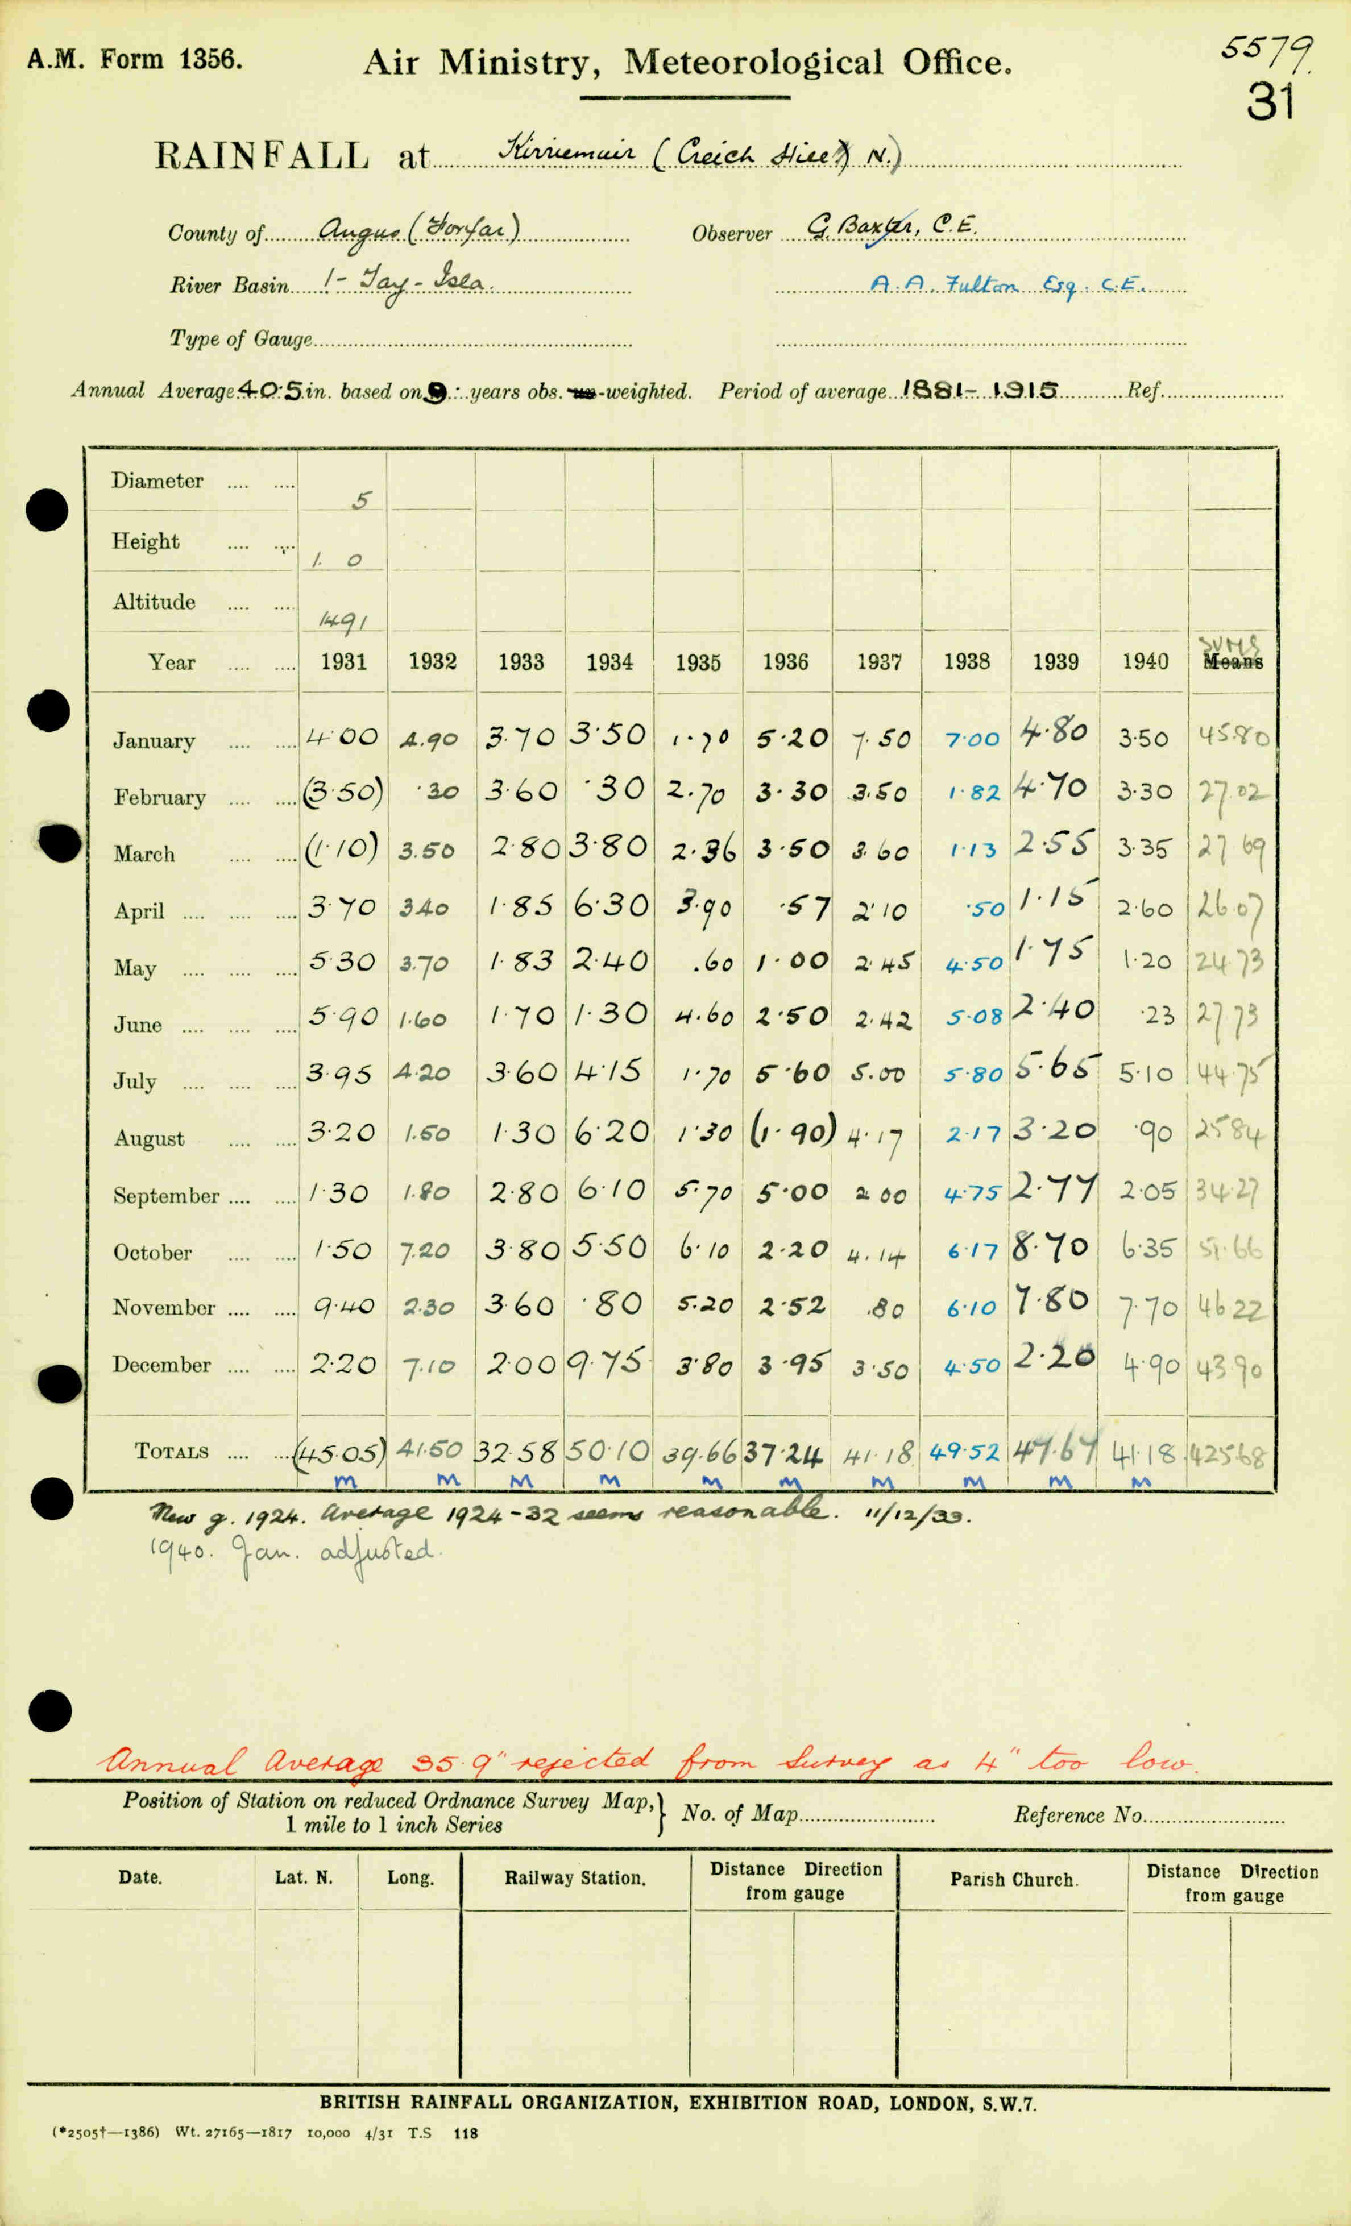 A.M. Form 1356.
Air Ministry, Meteorological Office.
5579.
31
RAINFALL at Kirriemuir (Creich Hill N.)
County of Angus (Forfar) Observer G. Baxter, C.E.
River Basin 1- Tay - Isla. A. A. Fulton Esq. C.E.
Type of Gauge
Annual Average 40.5 in. based on 9 years obs. un-weighted. Period of average 1881- 1915 Ref.
Diameter .... .... 5
Height .... .... 1. 0
Altitude .... .... 1491
Year .... .... 1931 1932 1933 1934 1935 1936 1937 1938 1939 1940 Means SUMS
January .... .... 4.00 4.90 3.70 3.50 1.70 5.20 7.50 7.00 4.80 3.50 45.80
February .... .... (3.50) .30 3.60 .30 2.70 3.30 3.50 1.82 4.70 3.30 27.02
March .... .... (1.10) 3.50 2.80 3.80 2.36 3.50 3.60 1.13 2.55 3.35 27 69
April .... .... .... 3.70 3.40 1.85 6.30 3.90 .57 2.10 .50 1.15 2.60 26 07
May .... .... .... 5.30 3.70 1.83 2.40 .60 1.00 2.45 4.50 1.75 1.20 24 73
June .... .... .... 5.90 1.60 1.70 1.30 4.60 2.50 2.42 5.08 2.40 .23 27 73
July .... .... .... 3.95 4.20 3.60 4.15 1.70 5.60 5.00 5.80 5.65 5.10 44.75
August .... .... 3.20 1.50 1.30 6.20 1.30 (1.90) 4.17 2.17 3.20 .90 25 84
September .... .... 1.30 1.80 2.80 6.10 5.70 5.00 2.00 4.75 2.77 2.05 34.27
October .... .... 1.50 7.20 3.80 5.50 6.10 2.20 4.14 6.17 8.70 6.35 51.66
November .... .... 9.40 2.30 3.60 .80 5.20 2.52 .80 6.10 7.80 7.70 46 22
December .... .... 2.20 7.10 2.00 9.75 3.80 3.95 3.50 4.50 2.20 4.90 43 90
TOTALS .... .... (45.05) 41.50 32.58 50.10 39.66 37.24 41.18 49.52 47.67 41.18 425.68
m m m m m m m m m m
New g. 1924. Average 1924-32 seems reasonable. 11/12/33.
1940. Jan. adjusted.
Annual Average 35.9" rejected from Survey as 4" too low.
Position of Station on reduced Ordnance Survey Map,} No. of Map Reference No.
1 mile to 1 inch Series
Date. Lat. N. Long. Railway Station. Distance Direction from gauge Parish Church. Distance Direction from gauge
BRITISH RAINFALL ORGANIZATION, EXHIBITION ROAD, LONDON, S.W.7.
(*2505†—1386) Wt. 27165—1817 10,000 4/31 T.S 118